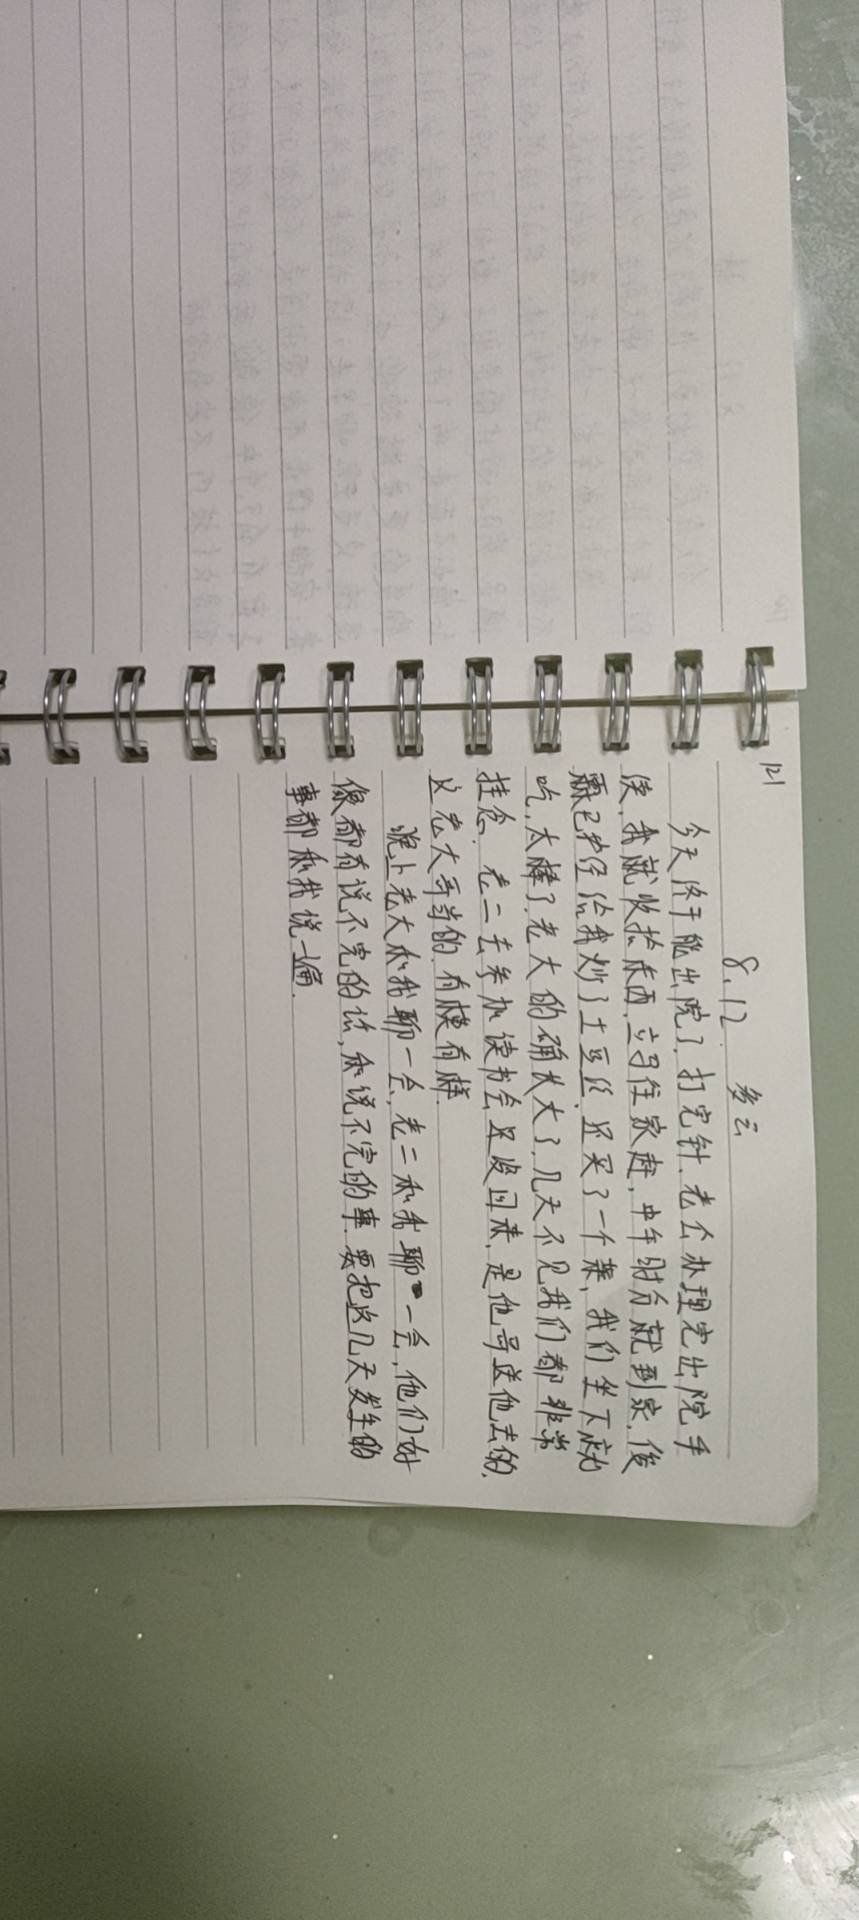 121
8.12. 多云
今天终于能出院了,打完针、老公办理完出院手
续,我就收拾东西,立马往家赶,中午时分就到家,俊
霖已经给我炒了土豆丝,还买了一个菜,我们坐下就
吃,太棒了.老大的确长大了,几天不见我们都非常
挂念.老二去参加读书会还没回来,是他哥送他去的,
这老大哥当的,有模有样.
晚上老大和我聊一会,老二和我聊一会,他们好
像都有说不完的话,和说不完的事.要把这几天发生的
事都和我说一遍.